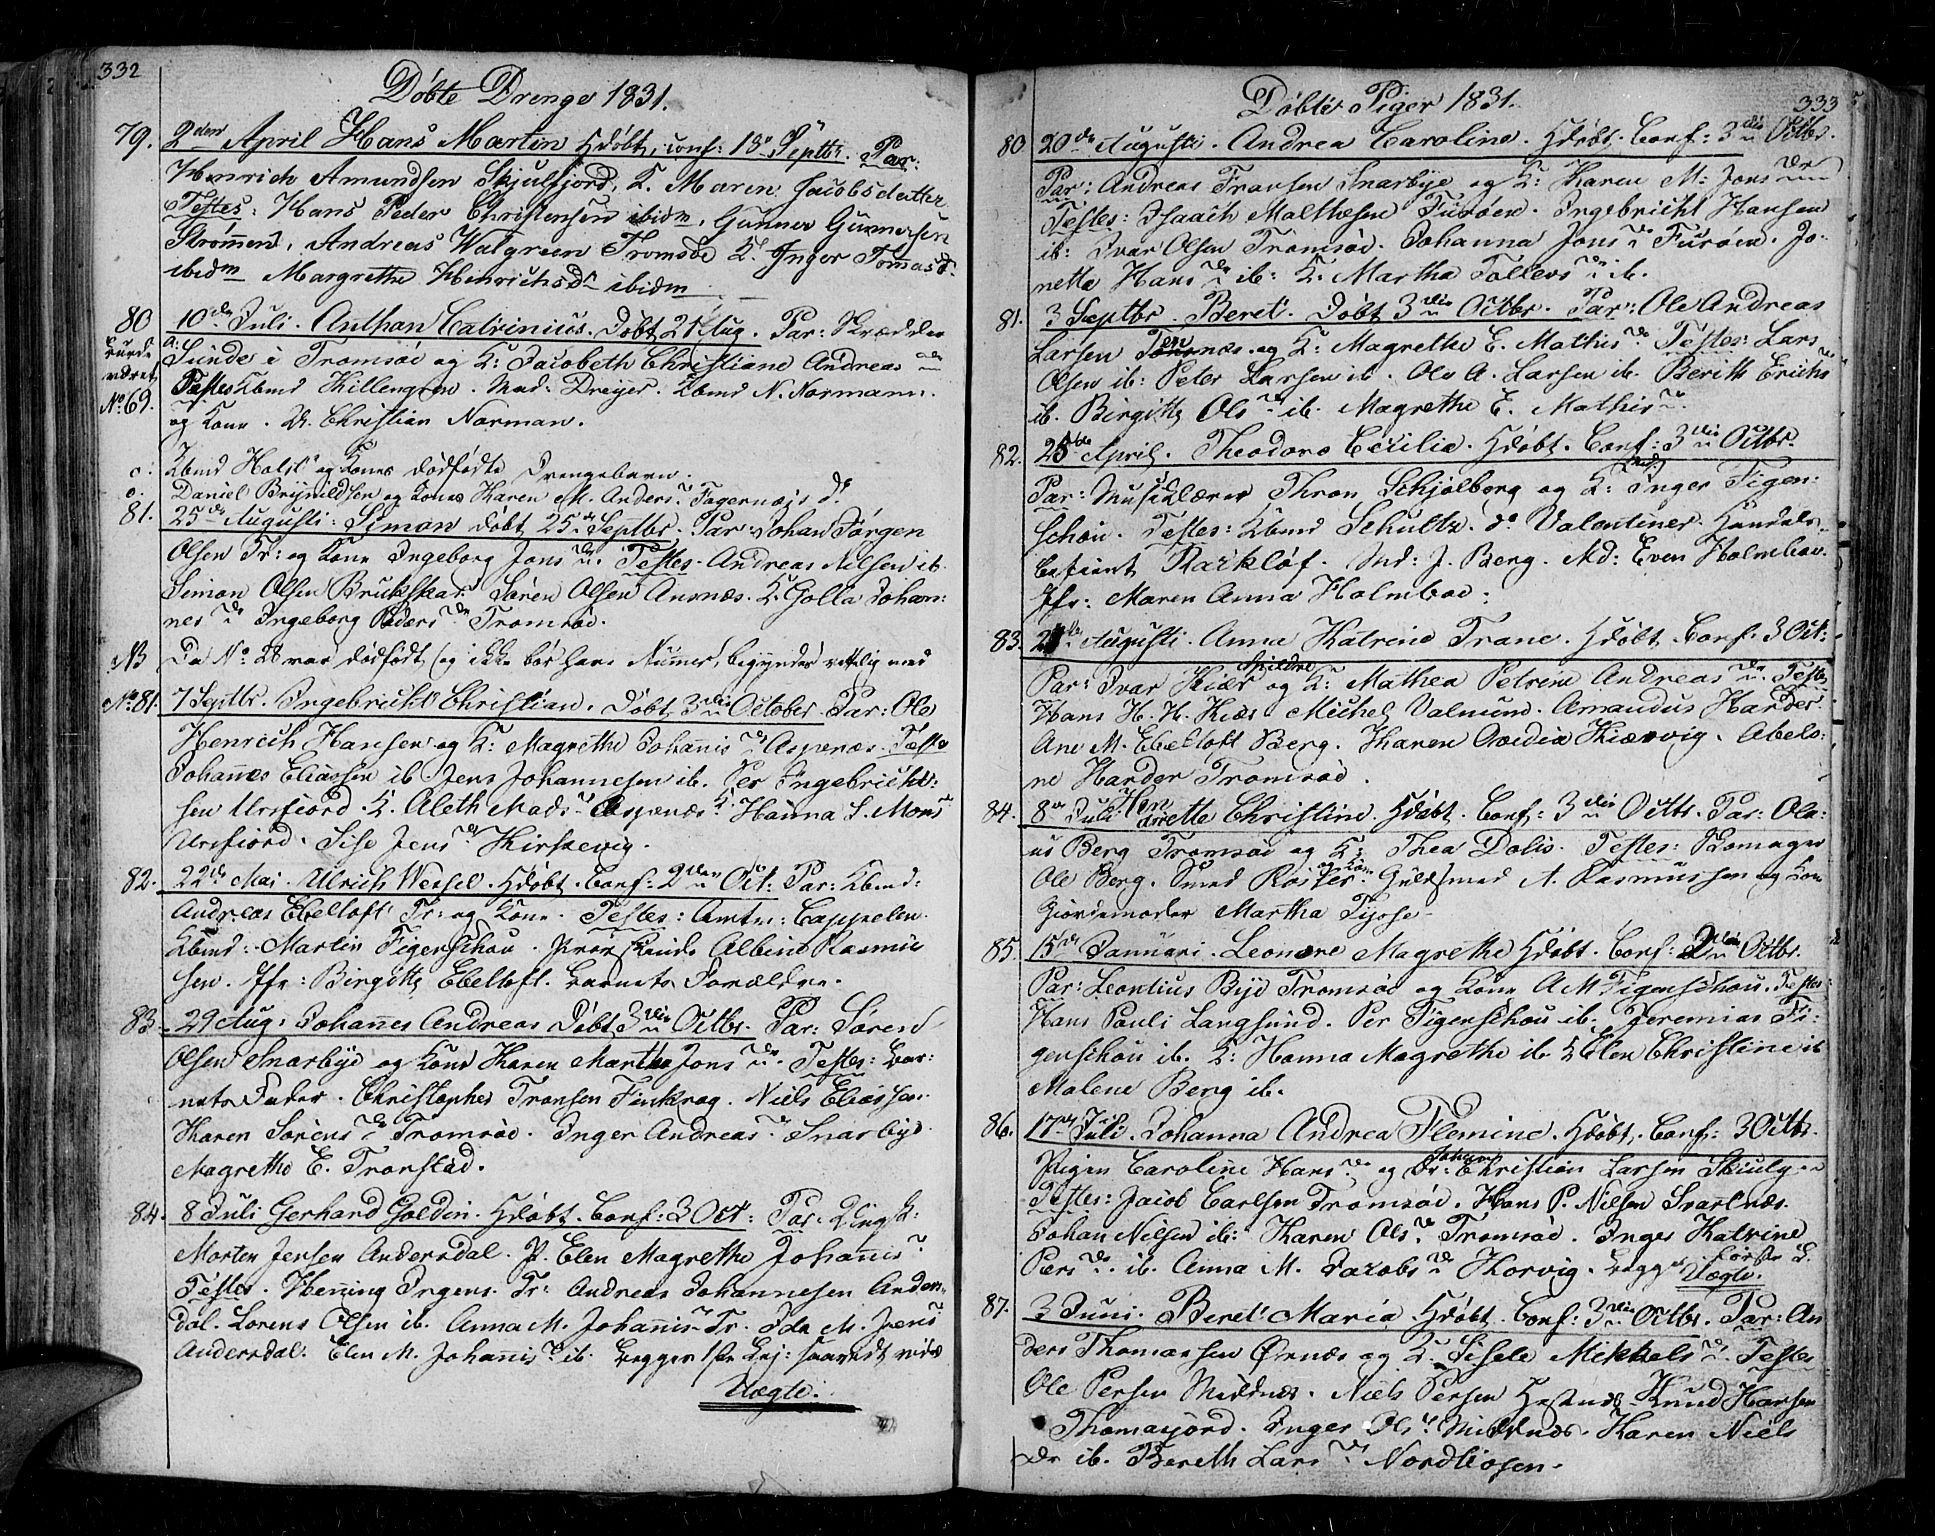 332
Döbte Drenge 1831.
79. 2den April Hans Martin Hdöbt, conf: 18de Septbr. Par:
Henrich Amundsen Skjulfjord, K. Maren Jacobsdatter
Testes: Hans Peder Christensen ibidm, Gunner Gunnersen
Strømmen, Andreas Walgreen Tromsöe K. Inger Tomasd.
ibidm Margrethe Henrichsdr ibidm
80 10de Juli. Anthan Catrinius. Döbt 21 Aug. Par: Skrædder
Sunde i Tromsöe og K: Jacobeth Christiane Andreasdr
Testes Kbmd Killengren. Mad: Dreyer. Kbmd N. Normann.
No. 69. og Kone. Chr. Christian Norman.
o. Kbmd Holst og Kones dödfödte Drengebarn.
o. Daniel Brynildsen og Kones Karen M. Andersdr Fagernæs do
81. 25de Augusti. Simon döbt 25de Septbr. Par: Johan Jörgen
Olsen Tr: og Kone Ingeborg Jonsdr. Testes. Andreas Nilsen ib.
Simon Olsen Brukskar. Sören Olsen Ansnæs. K. Golla Johan-
nesdr Ingeborg Pedersdr Tromsöe.
NB Da No 28 var dödfödt (og ikke bör have Numer, begyndes rettelig med
No. 81. 7 Septbr. Ingebricht Christian. Döbt 3die October. Par: Ole
Henrich Hansen og K: Magrethe Johannisdr Aspenæs. Testes
Johannes Eliassen ib. Jens Johannesen ib. Per Ingebricht-
sen Ursfiord. K. Aleth Madsdr Aspenæs. K. Hanna S. Monsdr
Ursfiord. Sise Jensdr Kirkevig.
82. 22de Mai. Ulrich Wessel. Hdöbt. Conf: 2den Oct: Par: Kbmd:
Andreas Ebeltoft Tr: og Kone. Testes: Amtm: Cappelen.
Kbmd: Martin Figenschou. Albine Rasmus
sen. Jfr: Birgitte Ebeltoft. Barnets Forældre.
83. 29 Aug: Johannes Andreas Döbt 3die Octbr. Par: Sören
Olsen Snarbye og Kone Karen Martha Jonsdr. Testes: Bar-
nets Fader. Christopher Tronsen Finkrog. Niels Eliassen.
Karen Sörensdr Tromsöe. Inger Andreasdr Snarbye.
Magrethe E. Tronstad.
84. 8 Juli Gerhard Goldin. Hdöbt. Conf: 3 Oct: Par: Ungk:
Morten Jensen Andersdal. P. Elen Magrethe Johannisdr
Testes. Henning Irgens. Tr: Andreas Johannesen Anders-
dal. Lorens Olsen ib. Anna M. Johannisdr Tr. Ida M. Jensdr
Andersdal. Elen M. Johannisdr ib. Begges 1ste Lej: saavidt vides
Uægte.
Döbte Piger 1831.
333
80 20de Augusti. Andrea Caroline. Hdöbt. Conf: 3die Octbr.
Par: Andreas Fransen Snarbye og K: Karen M: Jonsdr
Testes: Isaach Malthesen Furöen. Ingebricht Hansen
ib: Ivar Olsen Tromsöe. Johanna Jonsdr Furöen. Jo-
netta Hansdr ib: K: Martha Tollevsdr ib.
81. 3 Septbr. Beret. Döbt 3die Octbr. Par: Ole Andreas
Larsen Tennes og K: Magrethe E. Mathisdr. Testes: Lars
Olsen ib: Peter Larsen ib. Ole A. Larsen ib. Berith Erichsdr
ib. Birgitte Olsdr ib. Magrethe E. Mathisdr.
82. 25de April. Theodora Cecilia. Hdöbt. Conf: 3die Octbr.
Par: Musiklærer Thron Schjølberg og K: Inger Figen-
schou. Testes: Kbmd Schultz. do Valentiner. Handels-
betient Rarklöf. Md: J. Berg. Md: Even Holmboe.
Jfr: Maren Anna Holmboe.
83. Augusti. Anna Katrine Trane. Hdöbt. Conf. 3 Oct:
Par: Ivar Kiær Skildre og K: Mathea Petrine Andreasdr. Testes
Hans H. H. Kiær. Michel Valmund. Amandus Harder.
Ane M. Ebeltoft Berg. Karen Ovidia Kiærvig. Abelo-
ne Harder Tromsöe.
84. 8de Juli Henrette Christine. Hdöbt. Conf: 3die Octbr. Par: Ola-
us Berg Tromsöe og K: Thea Dolis. Testes: Skomager
Ole Berg. Smed Röyter og Kone. Guldsmed A. Rasmussen og Kone
Giordemoder Martha Fyhse.
85. 15de Januari. Leonore Magrethe Hdöbt. Conf: 2den Octbr.
Par: Leontius Bye Tromsöe og Kone A M Figenschou. Testes
Hans Pauli Langsund. Per Figenschou ib. Jeremias Fi-
genschou ib. K: Hanna Magrethe ib. K Elen Christine ib
Malene Berg ib.
86. 17de Juli. Johanna Andrea Flemine. Hdöbt. Conf: 3 Octbr.
Pigen Caroline Hansdr og Dr: Johan Christian Larsen Skiulg
Testes: Jacob Carlsen Tromsöe. Hans P. Nilsen Svartnæs.
Johan Nilsen ib: Karen Olsdr Tromsöe. Inger Katrine
Persdr ib. Anna M. Jacobsdr Horvig. Begges Förste L.
Uægte.
87. 3 Juni. Beret Maria Hdöbt. Conf: 3die Octbr. Par: An
ders Thomassen Ørnæs og K. Sisele Mikkelsdr. Testes
Ole Persen Mildnes. Niels Persen Hestnes. Knud Hansen
Thomasjord. Inger Olsdr Mildnes. Karen Niels
dr ib. Bereth Larsdr Nordliosen.